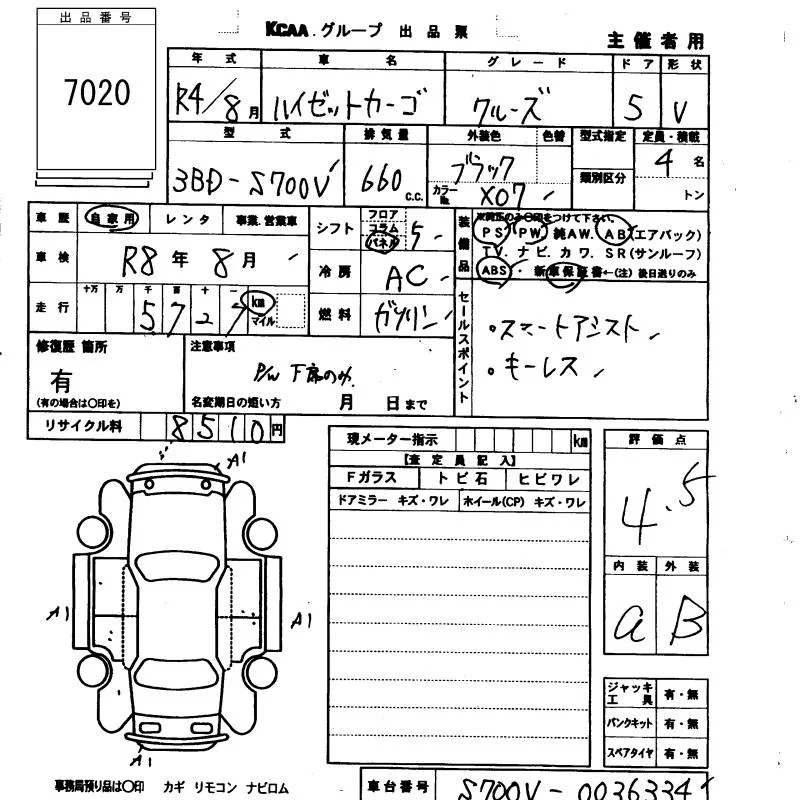 出品番号
7020
KCAA.グループ 出品票
主催者用
年式 車名 グレード ドア 形状
R4/8月 ハイゼットカーゴ クルーズ 5 V
型式 排気量 外装色 色替 型式指定 定員・積載
3BD-S700V 660c.c. ブラック 4名
カラーNo. X07 類別区分 トン
車歴 自家用 レンタ 事業.営業車
シフト フロア コラム パネル 5
装備品 ※純正のみ○印をつけて下さい。
PS PW 純AW. AB(エアバック)
TV. ナビ. カワ. SR(サンルーフ)
ABS. 新車保証書←(注)後日送りのみ
車検 R8年8月
冷房 AC
走行 十万 万 千 百 十 一
5727 km マイル
燃料 ガソリン
セールスポイント
・スマートアシスト
・キーレス
修復歴 箇所
有
(有の場合は○印を)
注意事項
P/W 下席のみ
名変期日の短い方 月 日まで
リサイクル料 8510円
現メーター指示 km
【査定員記入】
Fガラス トビ石 ヒビワレ
ドアミラー キズ・ワレ ホイール(CP) キズ・ワレ
評価点
4.5
内装 外装
a B
A1
A1
A1
A1
ジャッキ工具 有・無
パンクキット 有・無
スペアタイヤ 有・無
事務局預り品は○印 カギ リモコン ナビロム
車台番号 S700V-0036334